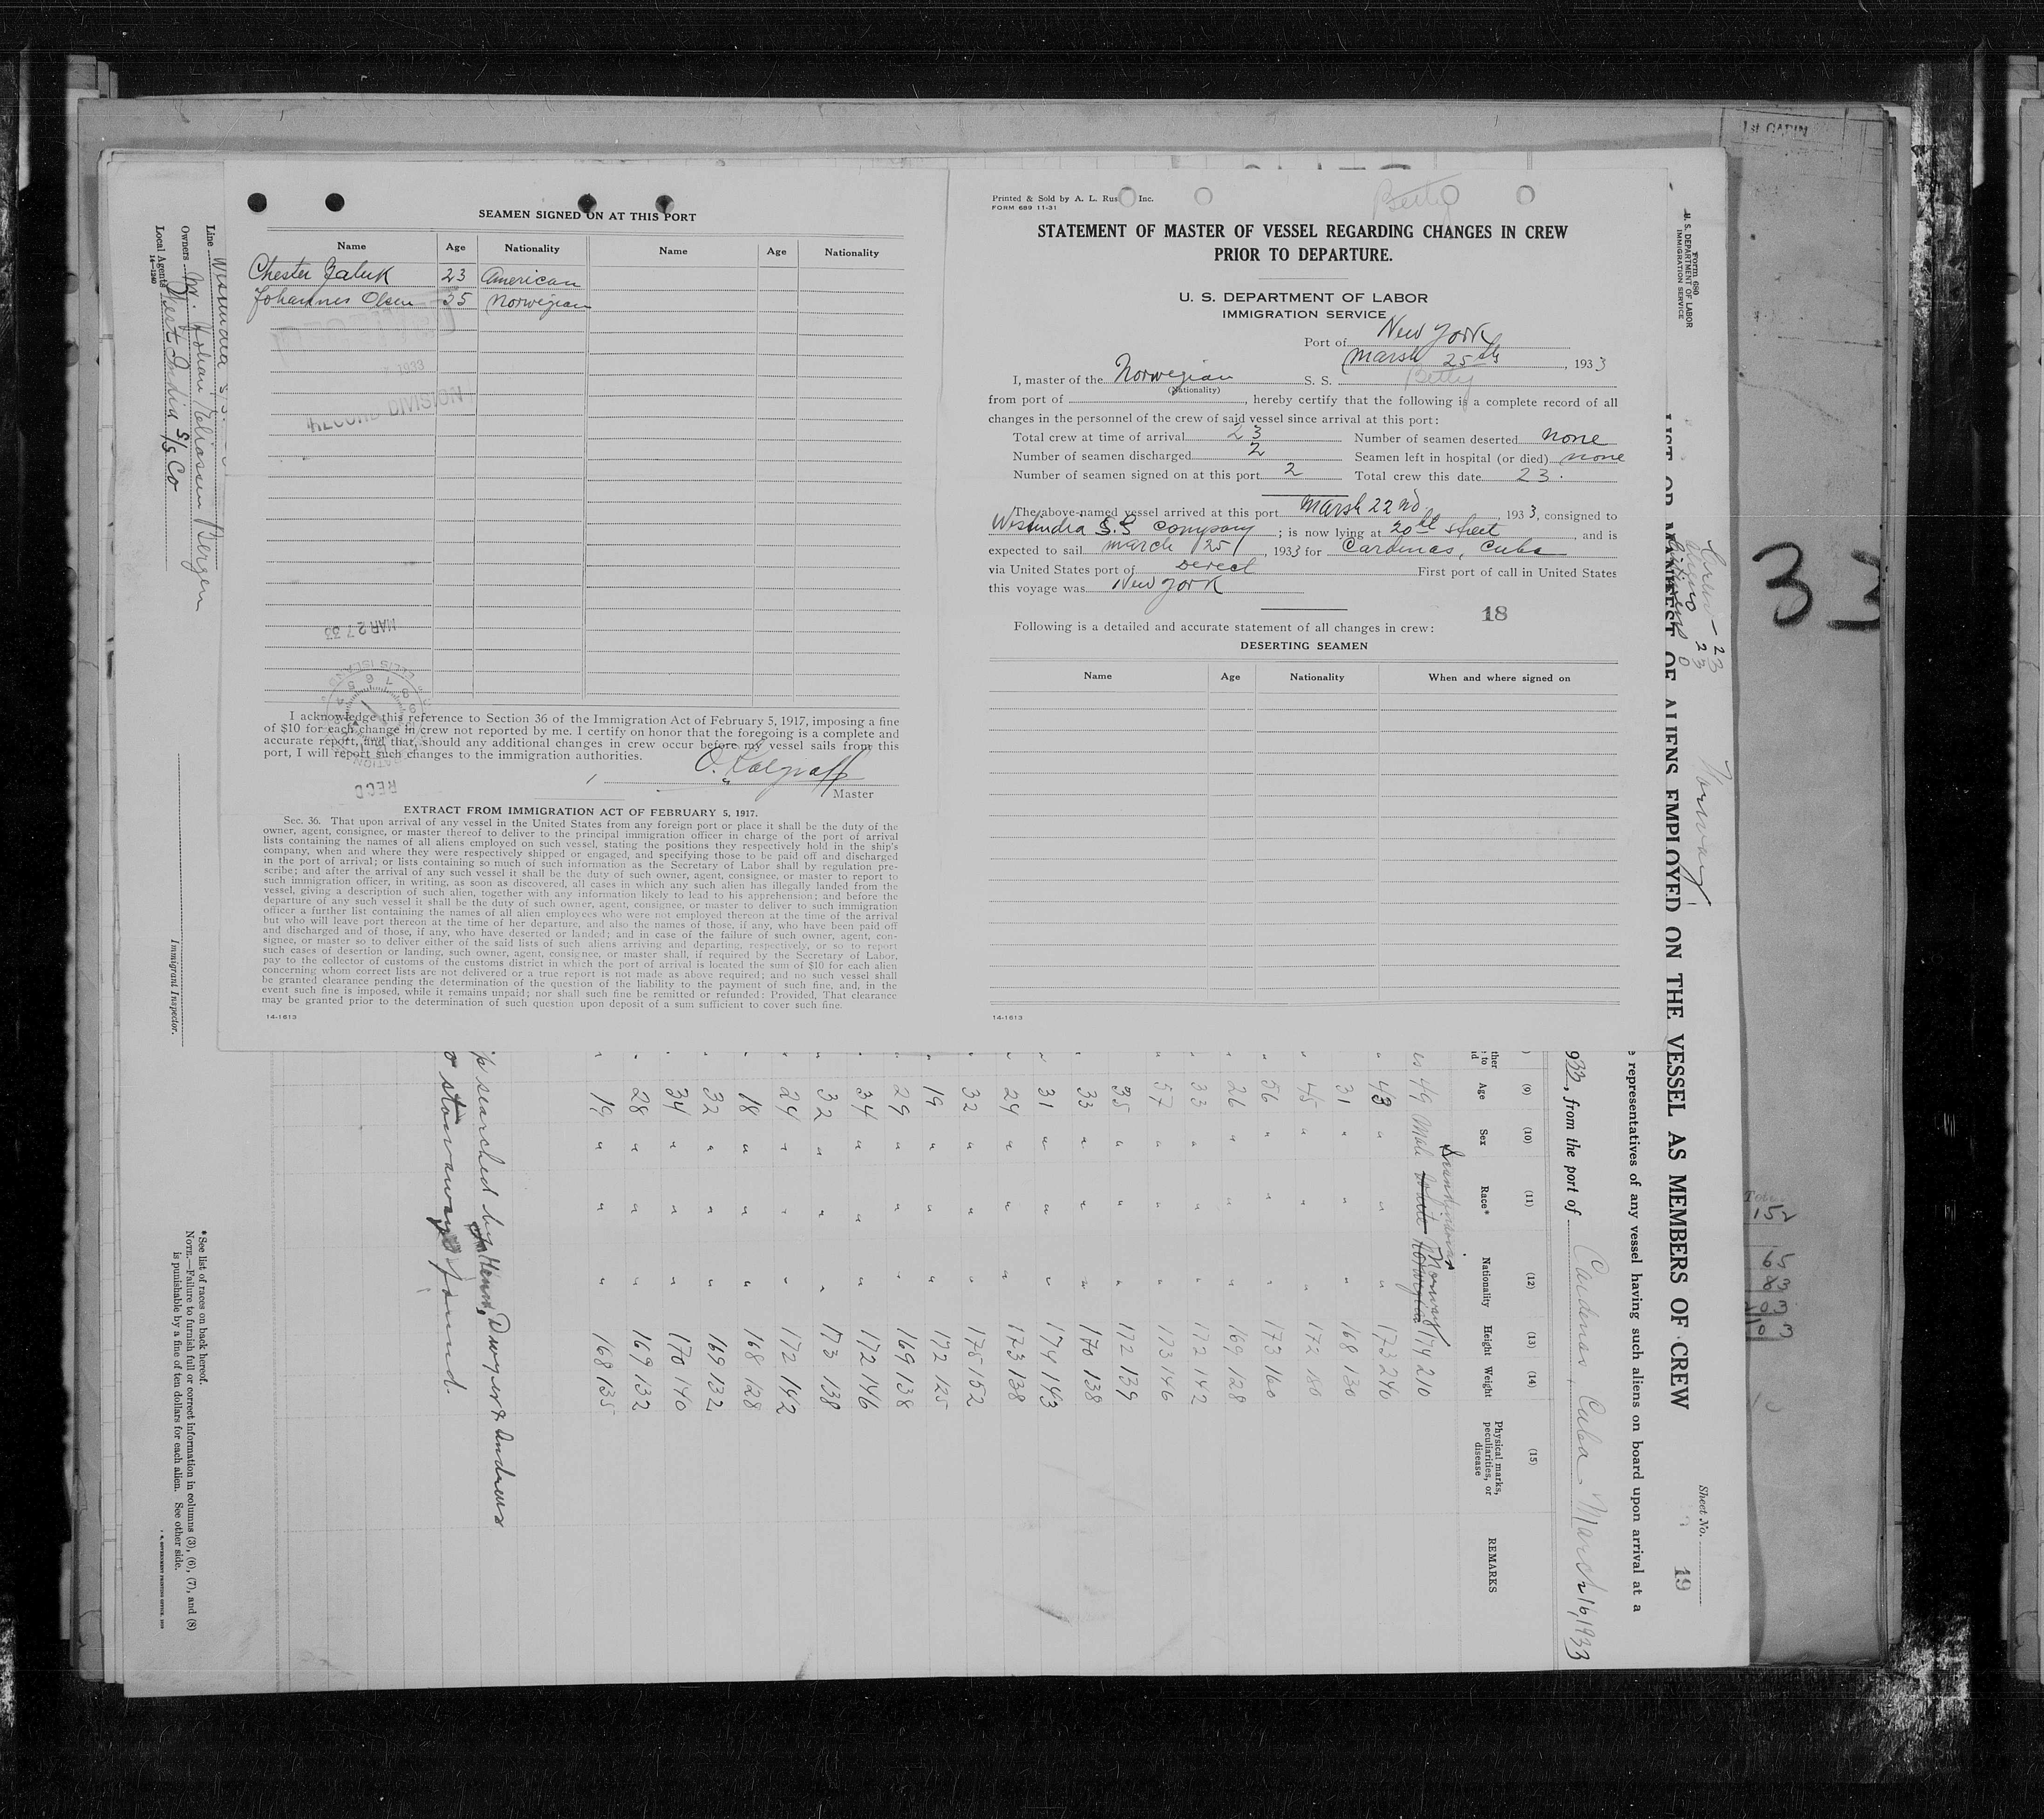 SEAMEN SIGNED ON AT THIS PORT
Name Age Nationality Name Age Nationality
Chester Zaluk 23 American
Johannes Olsen 25 Norwegian
1933
RECORD DIVISION
MAR 27 33
RECD
I acknowledge this reference to Section 36 of the Immigration Act of February 5, 1917, imposing a fine
of $10 for each change in crew not reported by me. I certify on honor that the foregoing is a complete and
accurate report, and that, should any additional changes in crew occur before my vessel sails from this
port, I will report such changes to the immigration authorities.
Master
EXTRACT FROM IMMIGRATION ACT OF FEBRUARY 5, 1917.
Sec. 36. That upon arrival of any vessel in the United States from any foreign port or place it shall be the duty of the
owner, agent, consignee, or master thereof to deliver to the principal immigration officer in charge of the port of arrival
lists containing the names of all aliens employed on such vessel, stating the positions they respectively hold in the ship's
company, when and where they were respectively shipped or engaged, and specifying those to be paid off and discharged
in the port of arrival; or lists containing so much of such information as the Secretary of Labor shall by regulation pre-
scribe; and after the arrival of any such vessel it shall be the duty of such owner, agent, consignee, or master to report to
such immigration officer, in writing, as soon as discovered, all cases in which any such alien has illegally landed from the
vessel, giving a description of such alien, together with any information likely to lead to his apprehension; and before the
departure of any such vessel it shall be the duty of such owner, agent, consignee, or master to deliver to such immigration
officer a further list containing the names of all alien employees who were not employed thereon at the time of the arrival
but who will leave port thereon at the time of her departure, and also the names of those, if any, who have been paid off
and discharged and of those, if any, who have deserted or landed; and in case of the failure of such owner, agent, con-
signee, or master so to deliver either of the said lists of such aliens arriving and departing, respectively, or so to report
such cases of desertion or landing, such owner, agent, consignee, or master shall, if required by the Secretary of Labor,
pay to the collector of customs of the customs district in which the port of arrival is located the sum of $10 for each alien
concerning whom correct lists are not delivered or a true report is not made as above required; and no such vessel shall
be granted clearance pending the determination of the question of the liability to the payment of such fine, and, in the
event such fine is imposed, while it remains unpaid; nor shall such fine be remitted or refunded: Provided, That clearance
may be granted prior to the determination of such question upon deposit of a sum sufficient to cover such fine.
14-1613
Printed & Sold by A. L. Rus Inc.
FORM 689 11-31
Betty
STATEMENT OF MASTER OF VESSEL REGARDING CHANGES IN CREW
PRIOR TO DEPARTURE.
U. S. DEPARTMENT OF LABOR
IMMIGRATION SERVICE
Port of New York
Marsh 25th, 1933
I, master of the Norwegian S. S. Betty
(Nationality)
from port of , hereby certify that the following is a complete record of all
changes in the personnel of the crew of said vessel since arrival at this port:
Total crew at time of arrival 23 Number of seamen deserted none
Number of seamen discharged 2 Seamen left in hospital (or died) none
Number of seamen signed on at this port 2 Total crew this date 23.
The above-named vessel arrived at this port Marsh 22nd, 1933, consigned to
Westindia S.S Company; is now lying at 20th street, and is
expected to sail march 25, 1933 for Cardenas, Cuba
via United States port of Derect First port of call in United States
this voyage was New York
18
Following is a detailed and accurate statement of all changes in crew:
DESERTING SEAMEN
Name Age Nationality When and where signed on
14-1613
Form 680
U. S. DEPARTMENT OF LABOR
IMMIGRATION SERVICE
LIST OR MANIFEST OF ALIENS EMPLOYED ON THE VESSEL AS MEMBERS OF CREW
Sheet No.
19
Norway
Crew - 23
Aliens 23
Citizens 0
representatives of any vessel having such aliens on board upon arrival at a
933, from the port of Cardenas, Cuba - March 16, 1933
(9) (10) (11) (12) (13) (14) (15)
Age Sex Race* Nationality Height Weight Physical marks, peculiarities, or disease REMARKS
Scandinavian
49 Male White Norway Norwegian 174 210
43 " " " 173 240
31 " " " 168 130
45 " " " 172 180
56 " " " 173 160
26 " " " 169 128
33 " " " 172 142
57 " " " 173 146
35 " " " 172 139
33 " " " 170 138
31 " " " 174 143
24 " " " 173 138
32 " " " 175 152
19 " " " 172 125
29 " " " 169 138
34 " " " 172 146
32 " " " 173 138
24 " " " 172 142
18 " " " 168 128
32 " " " 169 132
34 " " " 170 140
28 " " " 169 132
19 " " " 168 135
p searched by Henn, Dwyer & Andrews
o stowaways found.
Line Westindia S.S.
Owners Johan Eliassen Bergen
Local Agents West India S/S Co
14-1240
Immigrant Inspector.
*See list of races on back hereof.
NOTE.—Failure to furnish full or correct information in columns (3), (6), (7), and (8)
is punishable by a fine of ten dollars for each alien. See other side.
1st CABIN
33
Total
152
65
83
203
103